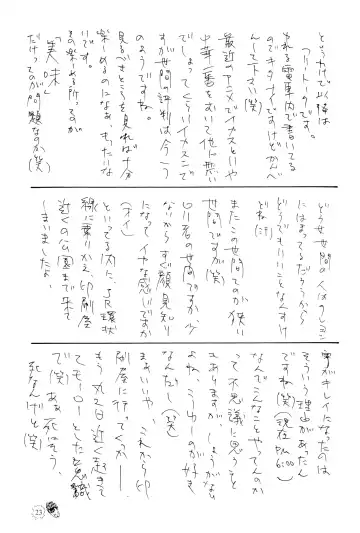 というわけで以降は
フリートークです。
ゆれる電車内で書いてる
のでキタナイですけどかんべ
んして下さい(笑)
最近のアニメでイカスといや
中華一番をおいて他に無い
でしょってこういイカスんで
すが世間の評判は今一つ
のようですね。
見るべきところを見れば十分
楽しめるのになぁ、もったいな
いです。
その楽しめる所ってのが
「美味」
だけってのが問題なのか(笑)
どうせ世間の人はクレヨン
にはまってるだろうから
どうでもいいことなんすけ
どね(汗)
またこの世間てのが狭い
世間ですが(笑)
同じ名の世間ですが少
ないからすぐ顔見知り
になってイヤな感じですが
(オイ)
といってる内にJR環状
線に乗りかえ、印刷屋
近くの公園まで来て
しまいましたよ。
字がキレイになったのは
そういう理由があったん
ですね(笑)(現在PM
6:00)
なんでこんなことやってんのか
って不思議に思うこと
もありますが、しょうがない
よね、こーゆーのが好き
なんだし(笑)
まぁいいや、これから印
刷屋に行てくっか——
もう丸2日近く起きて
てもーローとした意識
で(笑)あぁ死にそう、
死なんけど(笑)
23